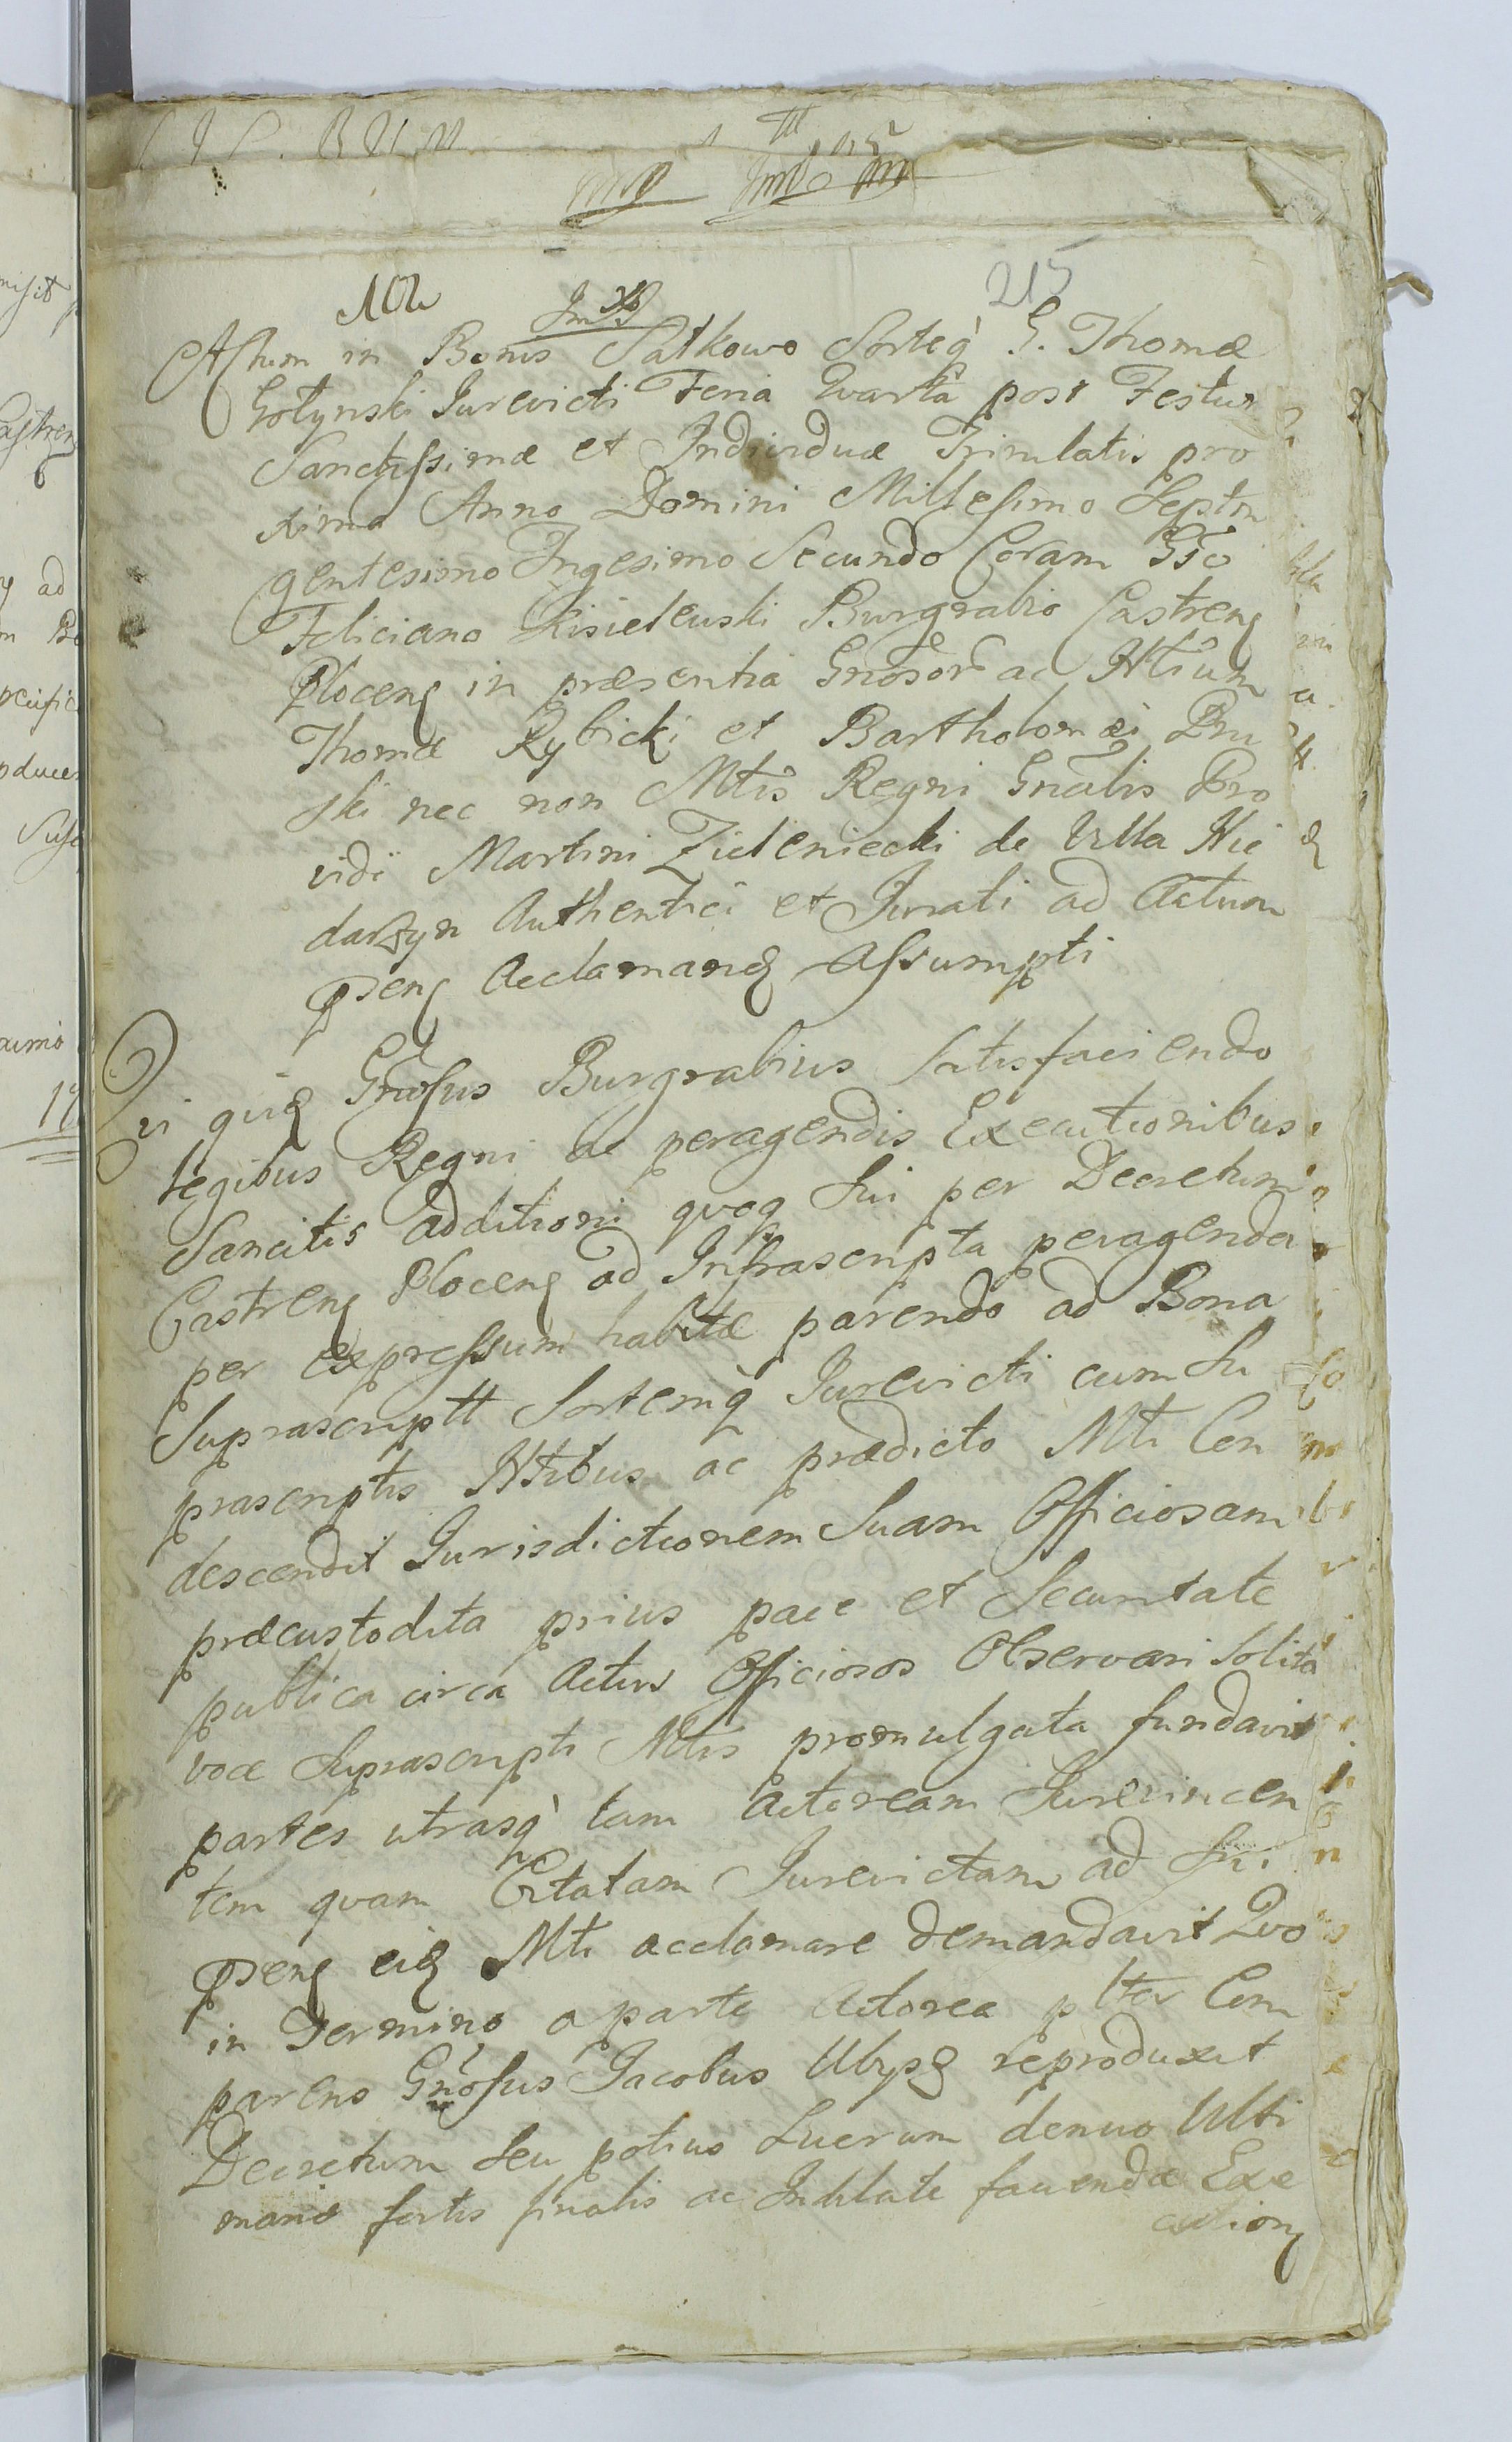 215
Actum in Bonis Satkowo Sorteq̀ G. Thomæ
Gołynski Jurevicti Feria Quarta post Festum
Sanctissimæ et Individuæ Trinitatis pro
xima Anno Domini Millesimo Septin
gentesimo Trigesimo Secundo Coram Gso
Feliciano Kisielewski Burgrabio Castren
Plocen in præsentia Gnosor ac Ntium
Thomæ Rybicki et Bartholomæi Pru
ski nec non Mtis Regni Gnalis Pro
vidi Martini Zieleniecki de Villa Nie
darzyn Authentici et Jurati ad Actum
psen Acclamand Assumpti
Qui quid Gnosus Burgrabius Satisfaciendo
legibus Regni de peragendis Executionibus
Sancitis additioni quoq Sui per Decretum
Castren Plocen ad Infrascripta peragenda
per expressum habitæ parendo ad Bona
Suprascriptt Sortemq̀ Jurevicti cum Su
prascriptis Ntibus ac prædicto Mti Con
descendit Jurisdictionem Suam Officiosam
præcustodita prius pace et Securitate
publica circa Actus Officiosos Observari Solita
voce Suprascripti Mtis promulgata fundavit
partes utrasq̀ tam Actoream Jurevincen
tem quam Citatam Jurevictam ad Sui
psen eid Mti acclamare demandavit Quo
in Termino a parte Actorea plter Com
parens Gnosus Jacobus Ulrysz reproduxit
Decretum Seu potius Lucrum denuo Ulti
mariæ Sortis finalis ac Inditate faciendæ Exe
cution